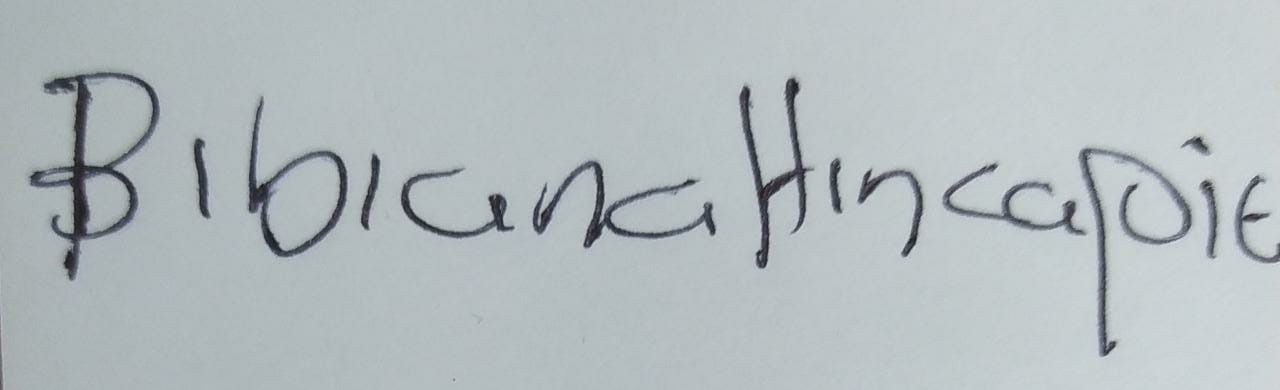 Bibiana Hincapie